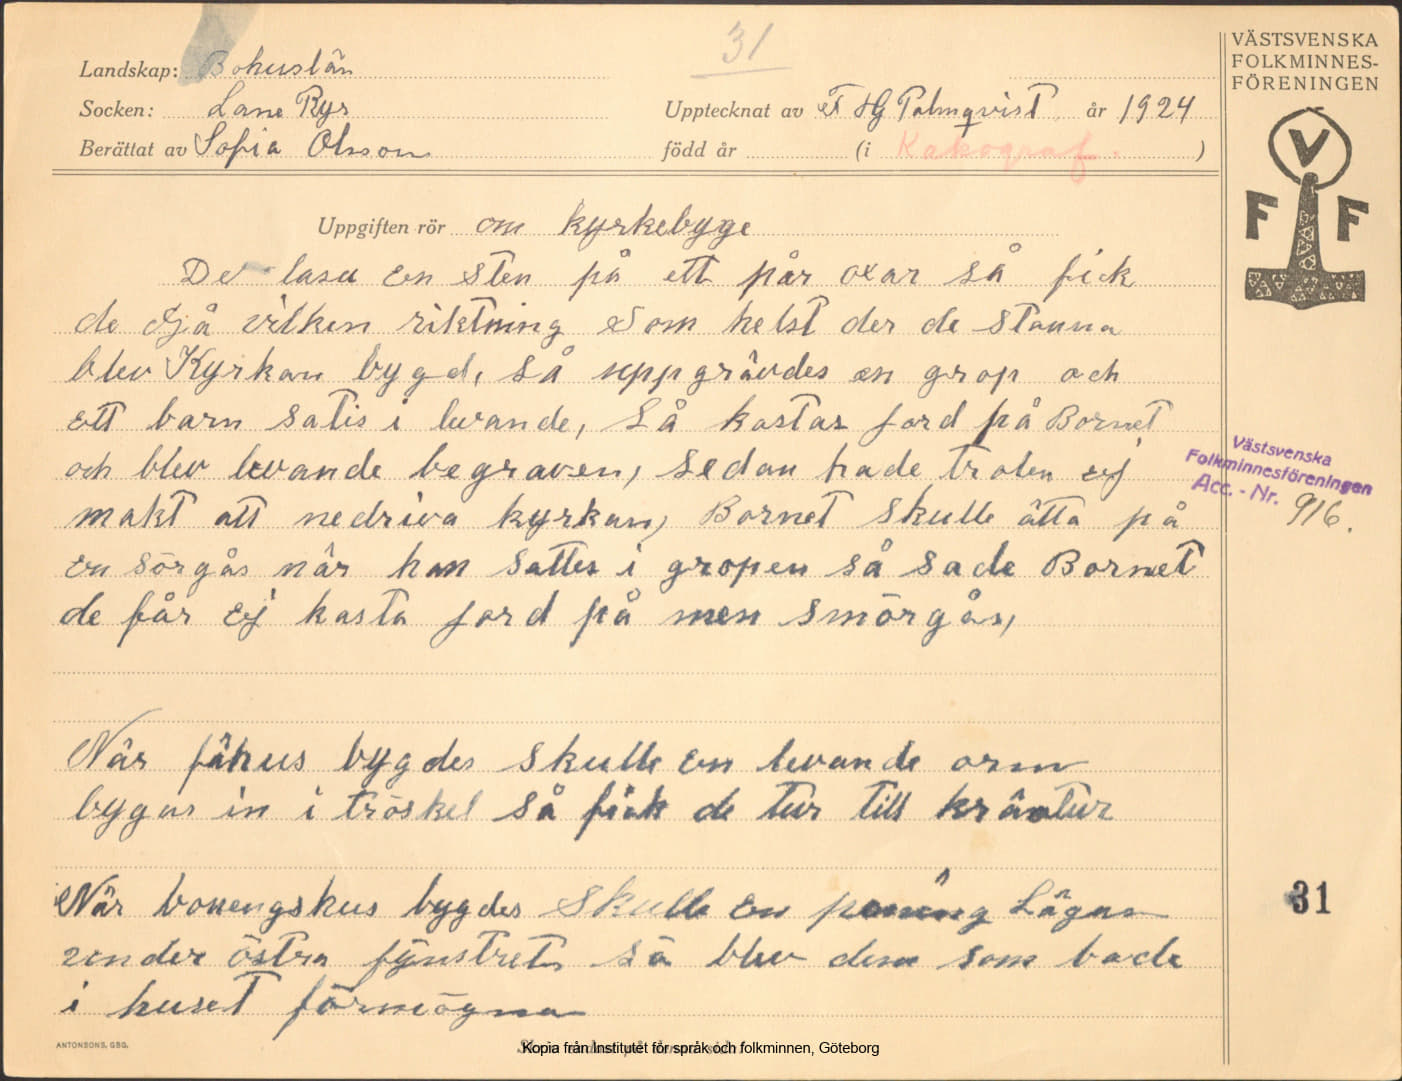 31
VÄSTSVENSKA
FOLKMINNES-
FÖRENINGEN
V
F F
Landskap: Bohuslän
Socken: Lane Rys
Upptecknat av F HG Palmqvist år 1924
Berättat av Sofia Olsson
född år (i Kakograf. )
Uppgiften rör om kyrkebyge
De lasa en sten på ett pår oxar så fick
de djå vilken riktning som helst der de stanna
blev Kyrkan bygd, så uppgrävdes en grop och
ett barn satis i levande, Så kastas jord på Barnet
och blev levande begraven, sedan hade trolen ej
makt att nedriva kyrkan, Barnet skulle ätta på
en sörgås när han sattes i gropen så sade Barnet
de får ej kasta jord på men smörgås,
Västsvenska
Folkminnesföreningen
Acc. - Nr. 916.
När fähus bygdes skulle en levande orm
bygas in i tröskel så fick de tur till kräatur
När bonengshus bygdes skulle en pening Lägas
under östra fynstret så blev dem som bode
i huset förmögna
31
ANTONSONS, GBG.
Kopia från Institutet för språk och folkminnen, Göteborg